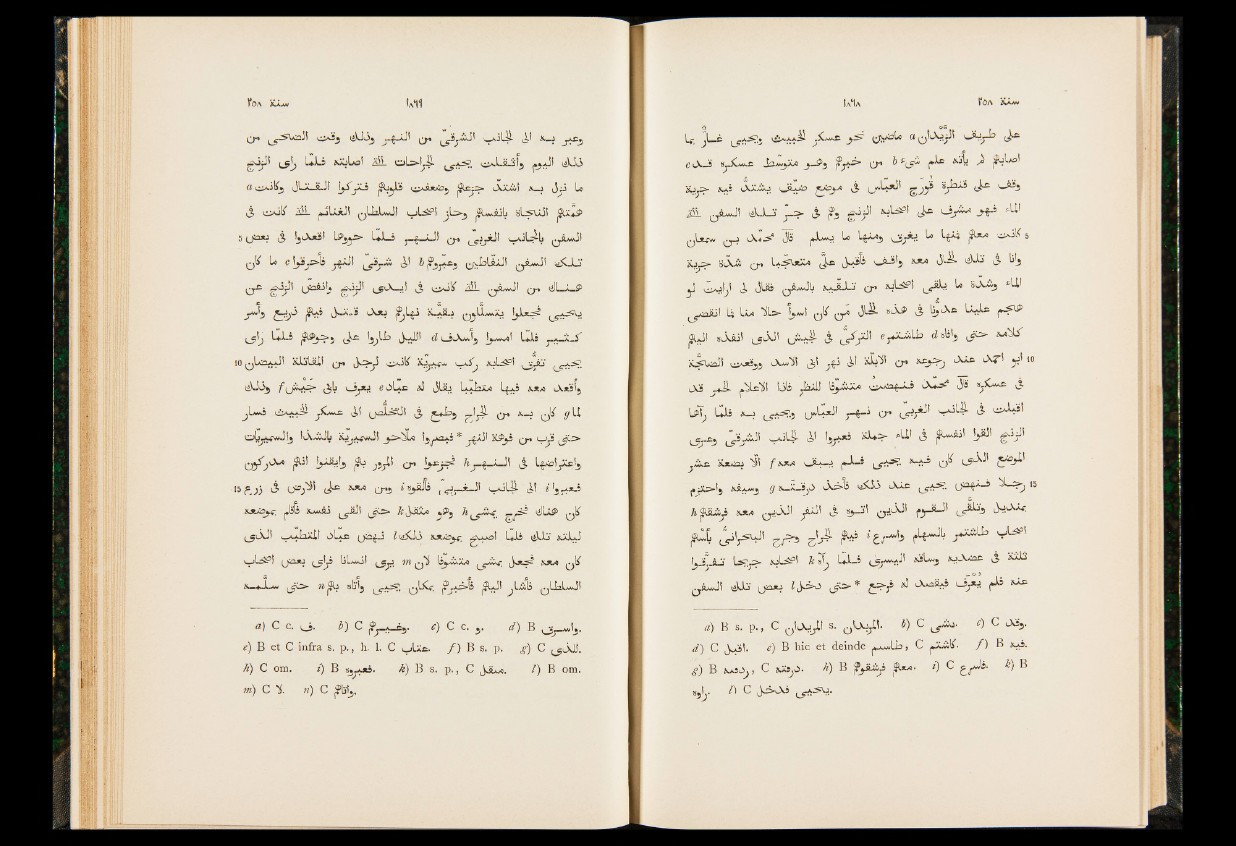 سنة ٢٥٨ ١٨٦٨
على طريف الزيدان a ماضين نحو عسكر الخبيث ويحيى غارّ بما
اصابهم لم يأته علم شىء b من خبرهم وهو متوسّط عسكره قد c
وقف على قنطرة قورج العبّاس فى موضع ضيّف يشتدّ فيه جرية
الماء فهو مشرف على اصحابه الزنج وهم فى جرّ تلك السفن التى
5 كانت معهم فمنها ما يغرق ومنها ما يسلم قال محمّد بن سمعان
وانا فى تلك الحال معه واقف فأقبل علىّ متعجّبا من شدّة جرية
الماء وشدّة ما يلقى اصحابه من تلقّيه بالسفن فقال لى ارايت لو
هجم علينا عدوّنا فى هذه الحال من كان اسوأ حالا منا فما انقضى
كلامه حتى وافاه d طاشتمر e التركىّ فى الجيش الذى انفذه اليهم
10 ابو احمد عند رجوعه من الابلّة الى نهر ابى الاسد ووقعت الضجّة
فى عسكره قال محمّد فنهضت متشوّفا للنظر فاذا الاعلام الحمر قد
اقبلت فى الجانب الغربىّ من نهر العبّاس ويحيى به فلمّا رآها
الزنج القوا انفسهم فى الماء جملة فعبروا الى الجانب الشرقىّ وعرى
الموضع الذى كان فيه يحيى فلم يبق معه f الّا بضعة عشر
15 رجلا فنهض يحيى عند ذلك فأخذ درقته g وسيفه واحتزم
بمنديل وتلقّى القوم الذين اتوه فى النفر الذين معه فرشقهم h
اصحاب طاشتمر بالسهام واسرع i فيهم الجراح وجرح البحرانىّ بأسهم
ثلثة فى عضديه وساقه اليسرى فلمّا رآه k اصحابه جريحا تفرّقوا
عنه فلم يعرف فيقصد له فرجع * حتى دخل l بعض تلك السفن
a) B s. p., C المزيدان s. المريدان. b) C بشى. c) C وقد.
d) C اقبل. e) B hic et deinde طاسمر, C كاشتم. f) B فيه.
g) B ورقعه, C درفته. h) B معهم فرشقوهم. i) C فاسرع. k) B
راوه. l) C يحيى فدخل.
سنة ٢٥٨ ١٨٦٩
وعبر به الى الجانب الشرقىّ من النهر وذلك وقت الضحى من
ذلك اليوم وأثقلت يحيى الجراحات التى اصابته فلمّا راى الزنج
ما نزل به اشتدّ جزعهم وضعفت قلوبهم فتركوا القتال وكانت a
همّتهم النجاة بانفسهم وحاز اصحاب السلطان الغنائم التى كانت فى
5 السفن بالجانب الغربىّ من النهر فلمّا حووها اقعدوا فى بعض
تلك السفن النفّاطين وعبّروهم b الى شرقىّ النهر فأحرقوا c ما كان
هناك من السفن التى كانت فى ايدى الزنج وانفضّ الزنج عن
يحيى فجعلوا يتسلّلون بقيّة نهارهم بعد قتل فيهم ذريع وأسر
كثير فلمّا امسوا وأسدف d الليل طاروا على وجوههم فلمّا راى
10 يحيى تفرّق اصحابه ركب سميريّة كانت لرجل من المقاتلة البيضان
وأقعد معه فيها متطبّبا يقال له عبّاد e يعرف بابى جيش f وذلك
لما g كان به من الجراح وطمع فى التخلّص الى عسكر الخبيث فسار
حتى قرب من فوهة النهر * فبصر ملّاحو السميريّة بالشذا والسميريّات
واعتراضها فى النهر h فجزعوا من المرور بهم وايقنوا انهم مدركون
15 فعبروا i الى الجانب الغربىّ فألقوه i ومن معه على الارض فى زرع
كان هناك فخرج يمشى h وهو مثقل k حتى القى نفسه فأقام بموضعه
ليلته تلك فلمّا اصبح بموضعه ذلك l نهض عبّاد المتطبّب الذى
كان معه فجعل يمشى متشوّفا لأن m يرى انسانا فراى بعض اصحاب
السلطان فأشار اليهم فأخبرهم بمكان يحيى وأتاه بهم n حتى سلّمه
a) C c. ف. b) C وغيرهم. c) C c. و. d) B واسرق.
e) B et C infra s. p., h. l. C عتاب. f) B s. p. g) C للذى.
h) C om. i) B فعبروه. k) B s. p., C منقل. l) B om.
m) C لا. n) C واتاهم.